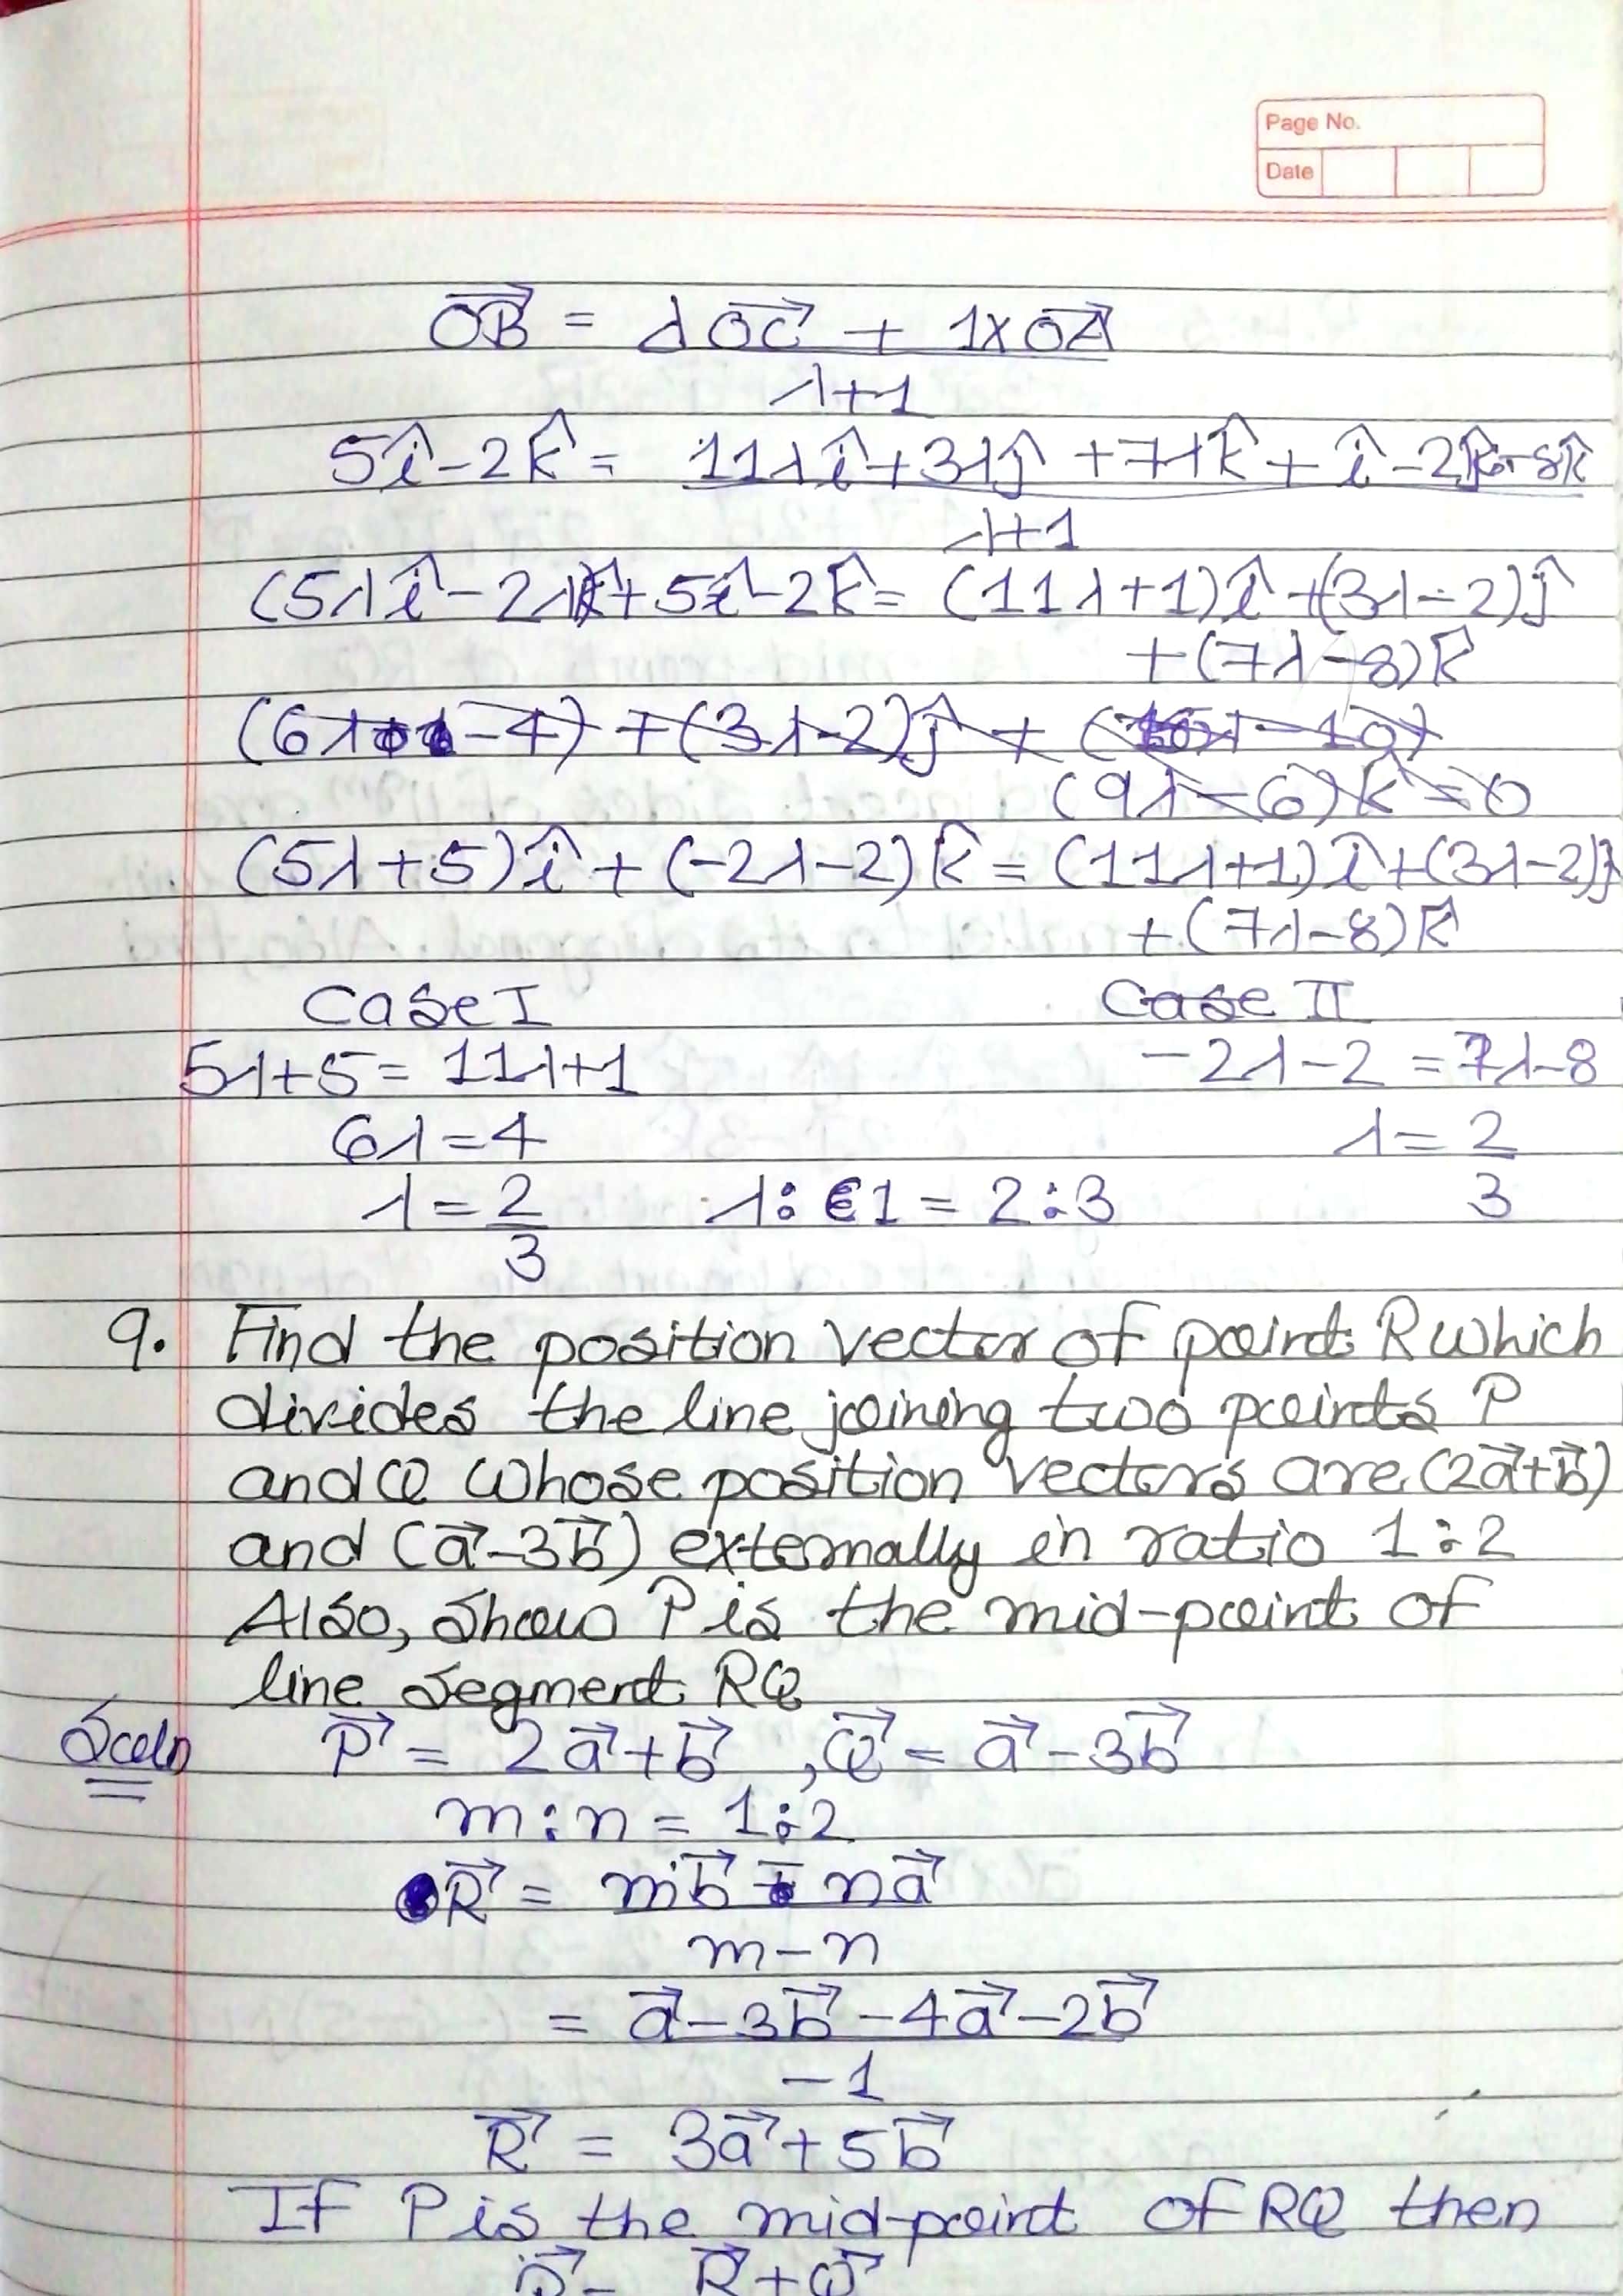 Page No.
Date
OB⃗ = λOC⃗ + 1×OA⃗
λ+1
5î-2k̂ = 11λî+3λĵ+7λk̂ + î-2ĵ-8k̂
λ+1
(5λî-2λk̂)+5î-2k̂ = (11λ+1)î+(3λ-2)ĵ
+(7λ-8)k̂
(6λ-4) + (3λ-2)ĵ +
(9λ-6)k̂=0
(5λ+5)î+(-2λ-2)k̂ = (11λ+1)î+(3λ-2)ĵ
+(7λ-8)k̂
Case I Case II
5λ+5 = 11λ+1 -2λ-2 = 7λ-8
6λ=4 λ= 2
λ = 2 λ:1 = 2:3 3
3
9. Find the position vector of point R which
divides the line joining two points P
and Q whose position vectors are (2a⃗+b⃗)
and (a⃗-3b⃗) externally in ratio 1:2
Also, show P is the mid-point of
line segment RQ
Soln P⃗ = 2a⃗+b⃗ , Q⃗ = a⃗-3b⃗
m:n = 1:2
R⃗ = mb⃗ - na⃗
m-n
= a⃗-3b⃗-4a⃗-2b⃗
-1
R⃗ = 3a⃗+5b⃗
If P is the mid-point of RQ then
P⃗ = R⃗+Q⃗